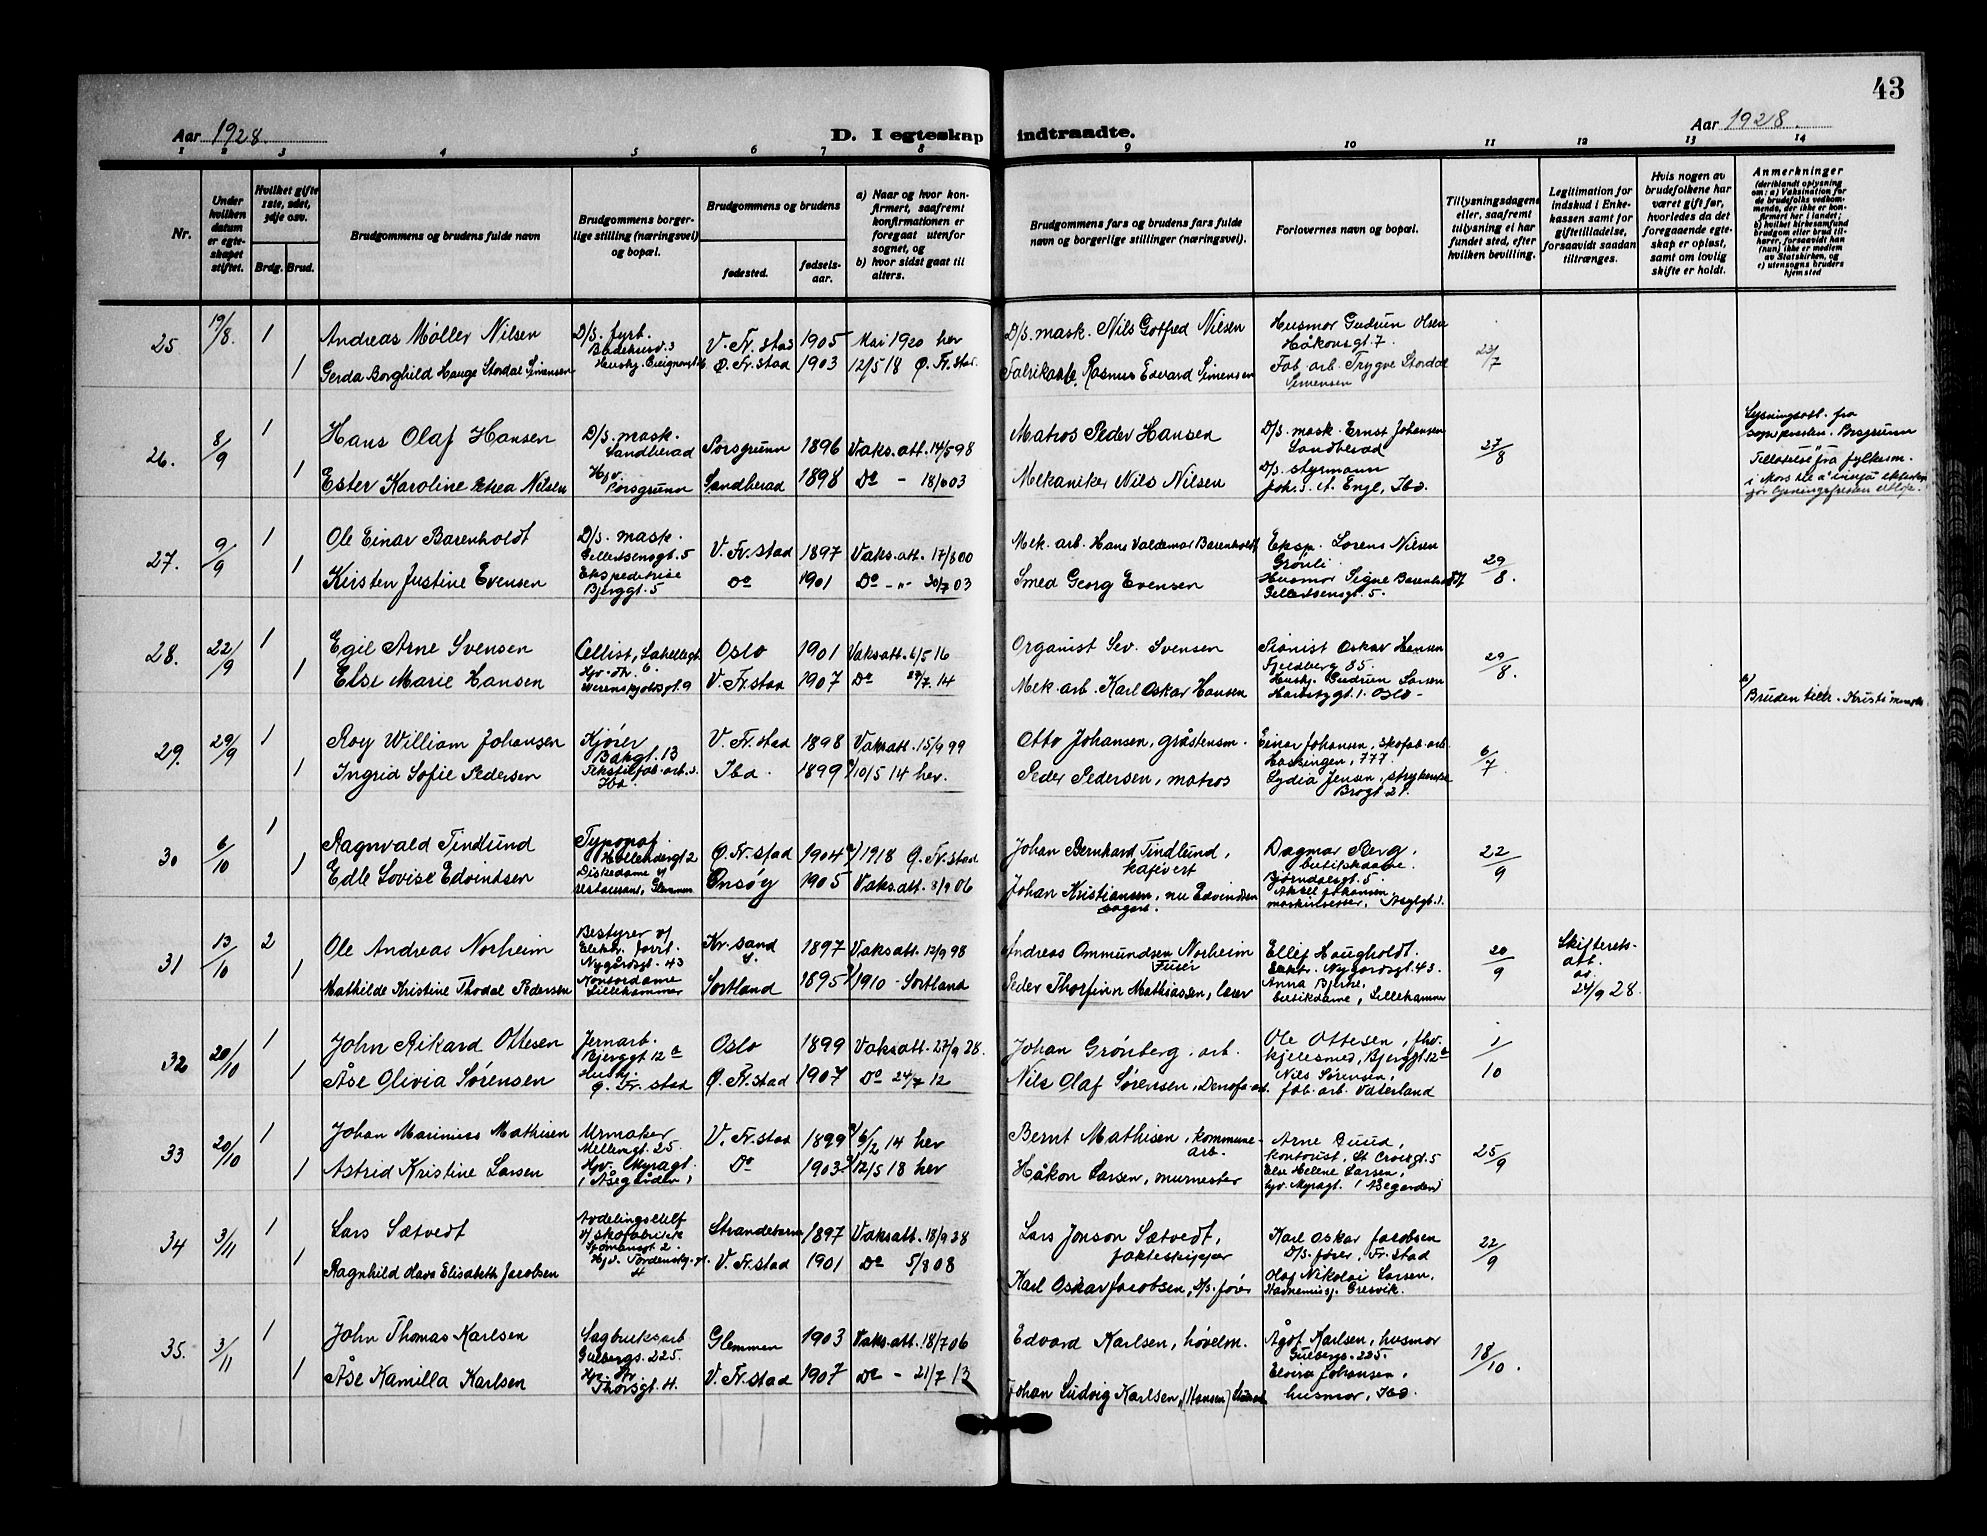 43
Aar 1928.
D. I egteskap indtraadte.
Aar 1928.
1 2 3 4 5 6 7 8 9 10 11 12 13 14
Nr.
Under hvilken datum er egteskapet stiftet.
Hvilket gifte 1ste, 2det, 3dje osv.
Brdg. Brud.
Brudgommens og brudens fulde navn
Brudgommens borgerlige stilling (næringsvei) og bopæl.
Brudgommens og brudens
fødested.
fødselsaar.
a) Naar og hvor konfirmert, saafremt konfirmationen er foregaat utenfor sognet, og
b) hvor sidst gaat til alters.
Brudgommens fars og brudens fars fulde navn og borgerlige stillinger (næringsvei).
Forlovernes navn og bopæl.
Tillysningsdagene eller, saafremt tillysning ei har fundet sted, efter hvilken bevilling.
Legitimation for indskud i Enkekassen samt for giftetilladelse, forsaavidt saadan tiltrænges.
Hvis nogen av brudefolkene har været gift før, hvorledes da det foregaaende egteskap er opløst, samt om lovlig skifte er holdt.
Anmerkninger
(deriblandt oplysning om: a) Vaksination for de brudefolks vedkommende, der ikke er konfirmert her i landet; b) hvilket kirkesamfund brudgom eller brud tilhører, forsaavidt han (hun) ikke er medlem av Statskirken, og c) utensogns bruders hjemsted
25 19/8. 1 Andreas Møller Nilsen D/S. fyrb. V. Fr.stad 1905 Mai 1920 her D/S. mask. Nils Gotfred Nilsen Husmor Gudrun Olsen Håkonsgt. 7.
1 Gerda Borghild Hauge Stordal Simensen Ø. Fr. stad 1903 12/5 18 Ø. Fr. stad. Rasmus Edvard Simensen Fab. arb. Trygve Stordal Simensen 23/7
26. 8/9 1 Hans Olaf Hansen D/S. mask. Sandherad Porsgrunn 1896 Vaks. att. 14/5 98 Matros Peder Hansen D/S. mask. Ernst Johansen Sandherad 27/8
1 Ester Karoline Petrea Nilsen Hjv. Porsgrunn Sandherad 1898 Do - 18/6 03 Mekaniker Nils Nilsen D/S. styrmann
Lysningsatt. fra sognepresten i Porsgrunn
Tillatelse fra fylkesm.
27. 9/9 1 Ole Einar Barenholdt D/S. mask. Gellertsensgt. 5 V. Fr. stad 1897 Vaks. att. 17/8 00 Mek. arb. Hans Valdemar Barenholdt Eksp. Lorens Nilsen Grønli. 29/8.
1 Kirsten Justine Evensen Ekspeditrise Bjerggt. 5 Do 1901 Do - " - 30/7 03 Smed Georg Evensen Husmor Signe Barenholdt Gellertsensgt. 5.
28. 22/9 1 Egil Arne Svensen Cellist, Oslo 1901 Vaksatt. 6/5 16 Organist Sev. Svensen Pianist Oskar Hansen Fjeldberg 85. 29/8.
1 Else Marie Hansen Werenskjoldsgt. 9 V. Fr. stad 1907 Do 29/7. 14 Mek. arb. Karl Oskar Hansen Hushj. Gudrun Larsen Oslo -
29. 29/9 1 Roy William Johansen Kjører Bakgt. 13 V. Fr. stad 1898 Vaksatt. 15/9 99 Otto Johansen, gråstensm. Einar Johansen, skofab. arb. 777. 6/7
1 Ingrid Sofie Pedersen Tekstilfab. arb. Ibd. Ibd. 1899 10/5 14 her. Peder Pedersen, matros Lydia Jensen, Brogt 21.
30 6/10 1 Ragnvald Tindlund Typograf. Hollendergt 2 Ø. Fr. stad 1904 a/ 1918 Ø. Fr. stad Johan Bernhard Tindlund, kafévert Dagmar Berg, butikkdame. Bjørndalsgt. 5. 22/9
1 Edle Lovise Edvindsen Diskedame v/ restaurant, Glemmen Onsøy 1905 Vaks. att. 8/9 06 Johan Kristiansen, nu Edvindsen Aksel Johansen maskinsetter, Asylgt. 1.
31 13/10 2 Ole Andreas Norheim Bestyrer v/ Elektr. forr. Nygårdsgt. 43 Kr. sand S. 1897 Vaksatt. 12/9 98 Andreas Ommundsen Norheim Ellef Haugholdt. Nygårdsgt. 43. 20/9 Skifterets-att. av 24/9 28.
1 Mathilde Kristine Thodal Pedersen Kontordame Lillehammer Sortland 1895 1910 - Sortland Peder Thorfinn Mathiassen, lærer Anna Bjerke, butikdame, Lillehammer
32 20/10 1 John Rikard Ottesen Jernarb. Bjerggt 12c Oslo 1899 Vaksatt. 27/9 28. Johan Grønberg. arb. Ole Ottesen, fhv. kjelesmed, Bjerggt. 12c 1/10
1 Åse Olivia Sørensen Hushj. Ø. Fr. stad Ø. Fr. stad 1907 Do 24/7 12 Nils Olaf Sørensen, Denofa-arb. Nils Sørensen, fab. arb. Vaterland
33 20/10 1 Johan Marinius Mathisen Urmaker Mellemgt. 25. V. Fr. stad 1899 6/2 14 her Bernt Mathisen, kommunearb. Arne Buud, kontorist, St Croixgt. 5 25/9
1 Astrid Kristine Larsen Hjv. Myragt. Do 1903 12/5 18 her Håkon Larsen, murmester Else Helene Larsen, hjv. Myragt.
34 3/11 1 Lars Sætvedt Avdelingschef v/ skofabrikk Strandebarm 1897 Vaksatt. 18/9 28 Lars Jonson Sætvedt, jakteskipper Karl Oskar Jacobsen D/S. fører, Fr. stad 22/9
1 Ragnhild Hava Elisabeth Jacobsen V. Fr. stad 1901 Do 5/8 08 Karl Oskar Jacobsen, D/S. fører Olaf Nikolai Larsen, Gresvik.
35. 3/11 1 John Thomas Karlsen Sagbruksarb. Gulbergs. 225. Glemmen 1903 Vaks. att. 18/7 06 Edvard Karlsen, høvelm. Ågot Karlsen, husmor Gulbergs. 225. 18/10.
1 Åse Kamilla Karlsen Thorsgt. 4. V. Fr. stad 1907 Do - 21/7 13 Johan Ludvig Karlsen, (Hansen) Elvira Johansen, husmor, Ibd.